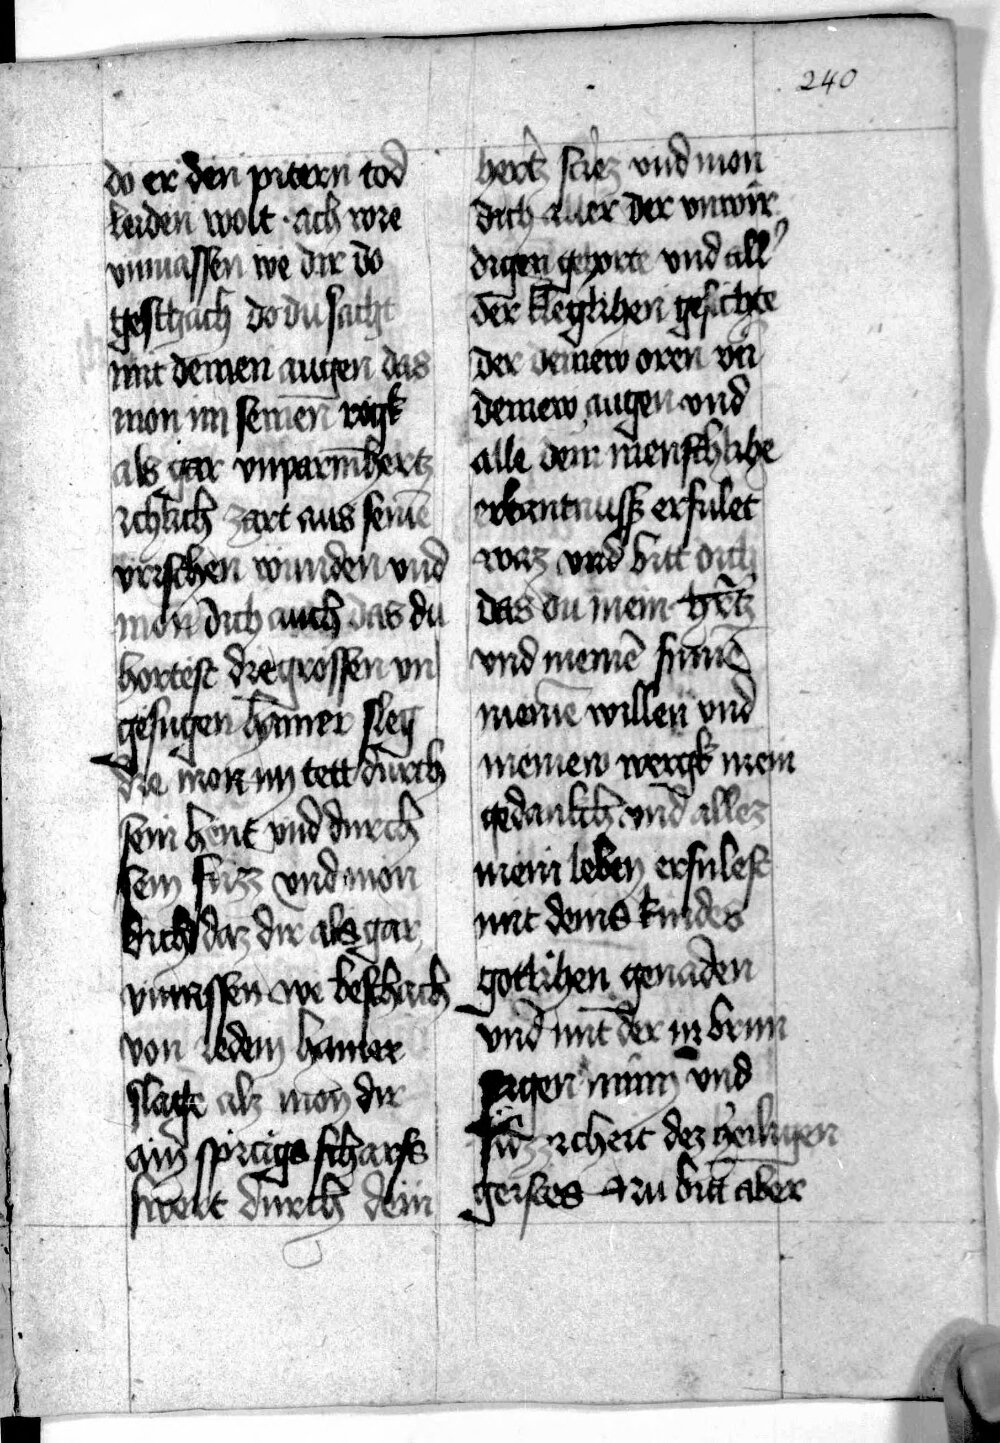 240
do er den pitern tod
leiden wolt · ach wie
vnmassen we dir do
geschach do du sacht
mit deinen augen das
mon im seinen rogk
als gar vnparmhertz
ichlich zart aus seinē
vrischen wunden vnd
mon dich auch das du
hortest die grossen vn
gefugen hamer sleg
die mon im tett durch
sein hent vnd durch
sein fuzz vnd mon
dich daz dir als gar
vnmassen we beschach
von iedem hamer
slage als mon dir
ain spiczigs scharfs
swert durch dein
hertz stiez vnd mon
dich aller der vnwir
digen gehorte vnd all
der kleglichen gesichte
der deinew oren vn̄
deinew augen vnd
alle dein menschliche
erkantnuss erfulet
waz vnd bitt dich
das du mein hertz
vnd meinē sinnē
meinē willen vnd
meinew wergk mein
gedankch vnd allez
mein leben erfulest
mit deins kindes
gotlichen genaden
vnd mit der inbrun
stigen minn vnd
suzzicheit dez heiligen
geistes Nu bitt aber